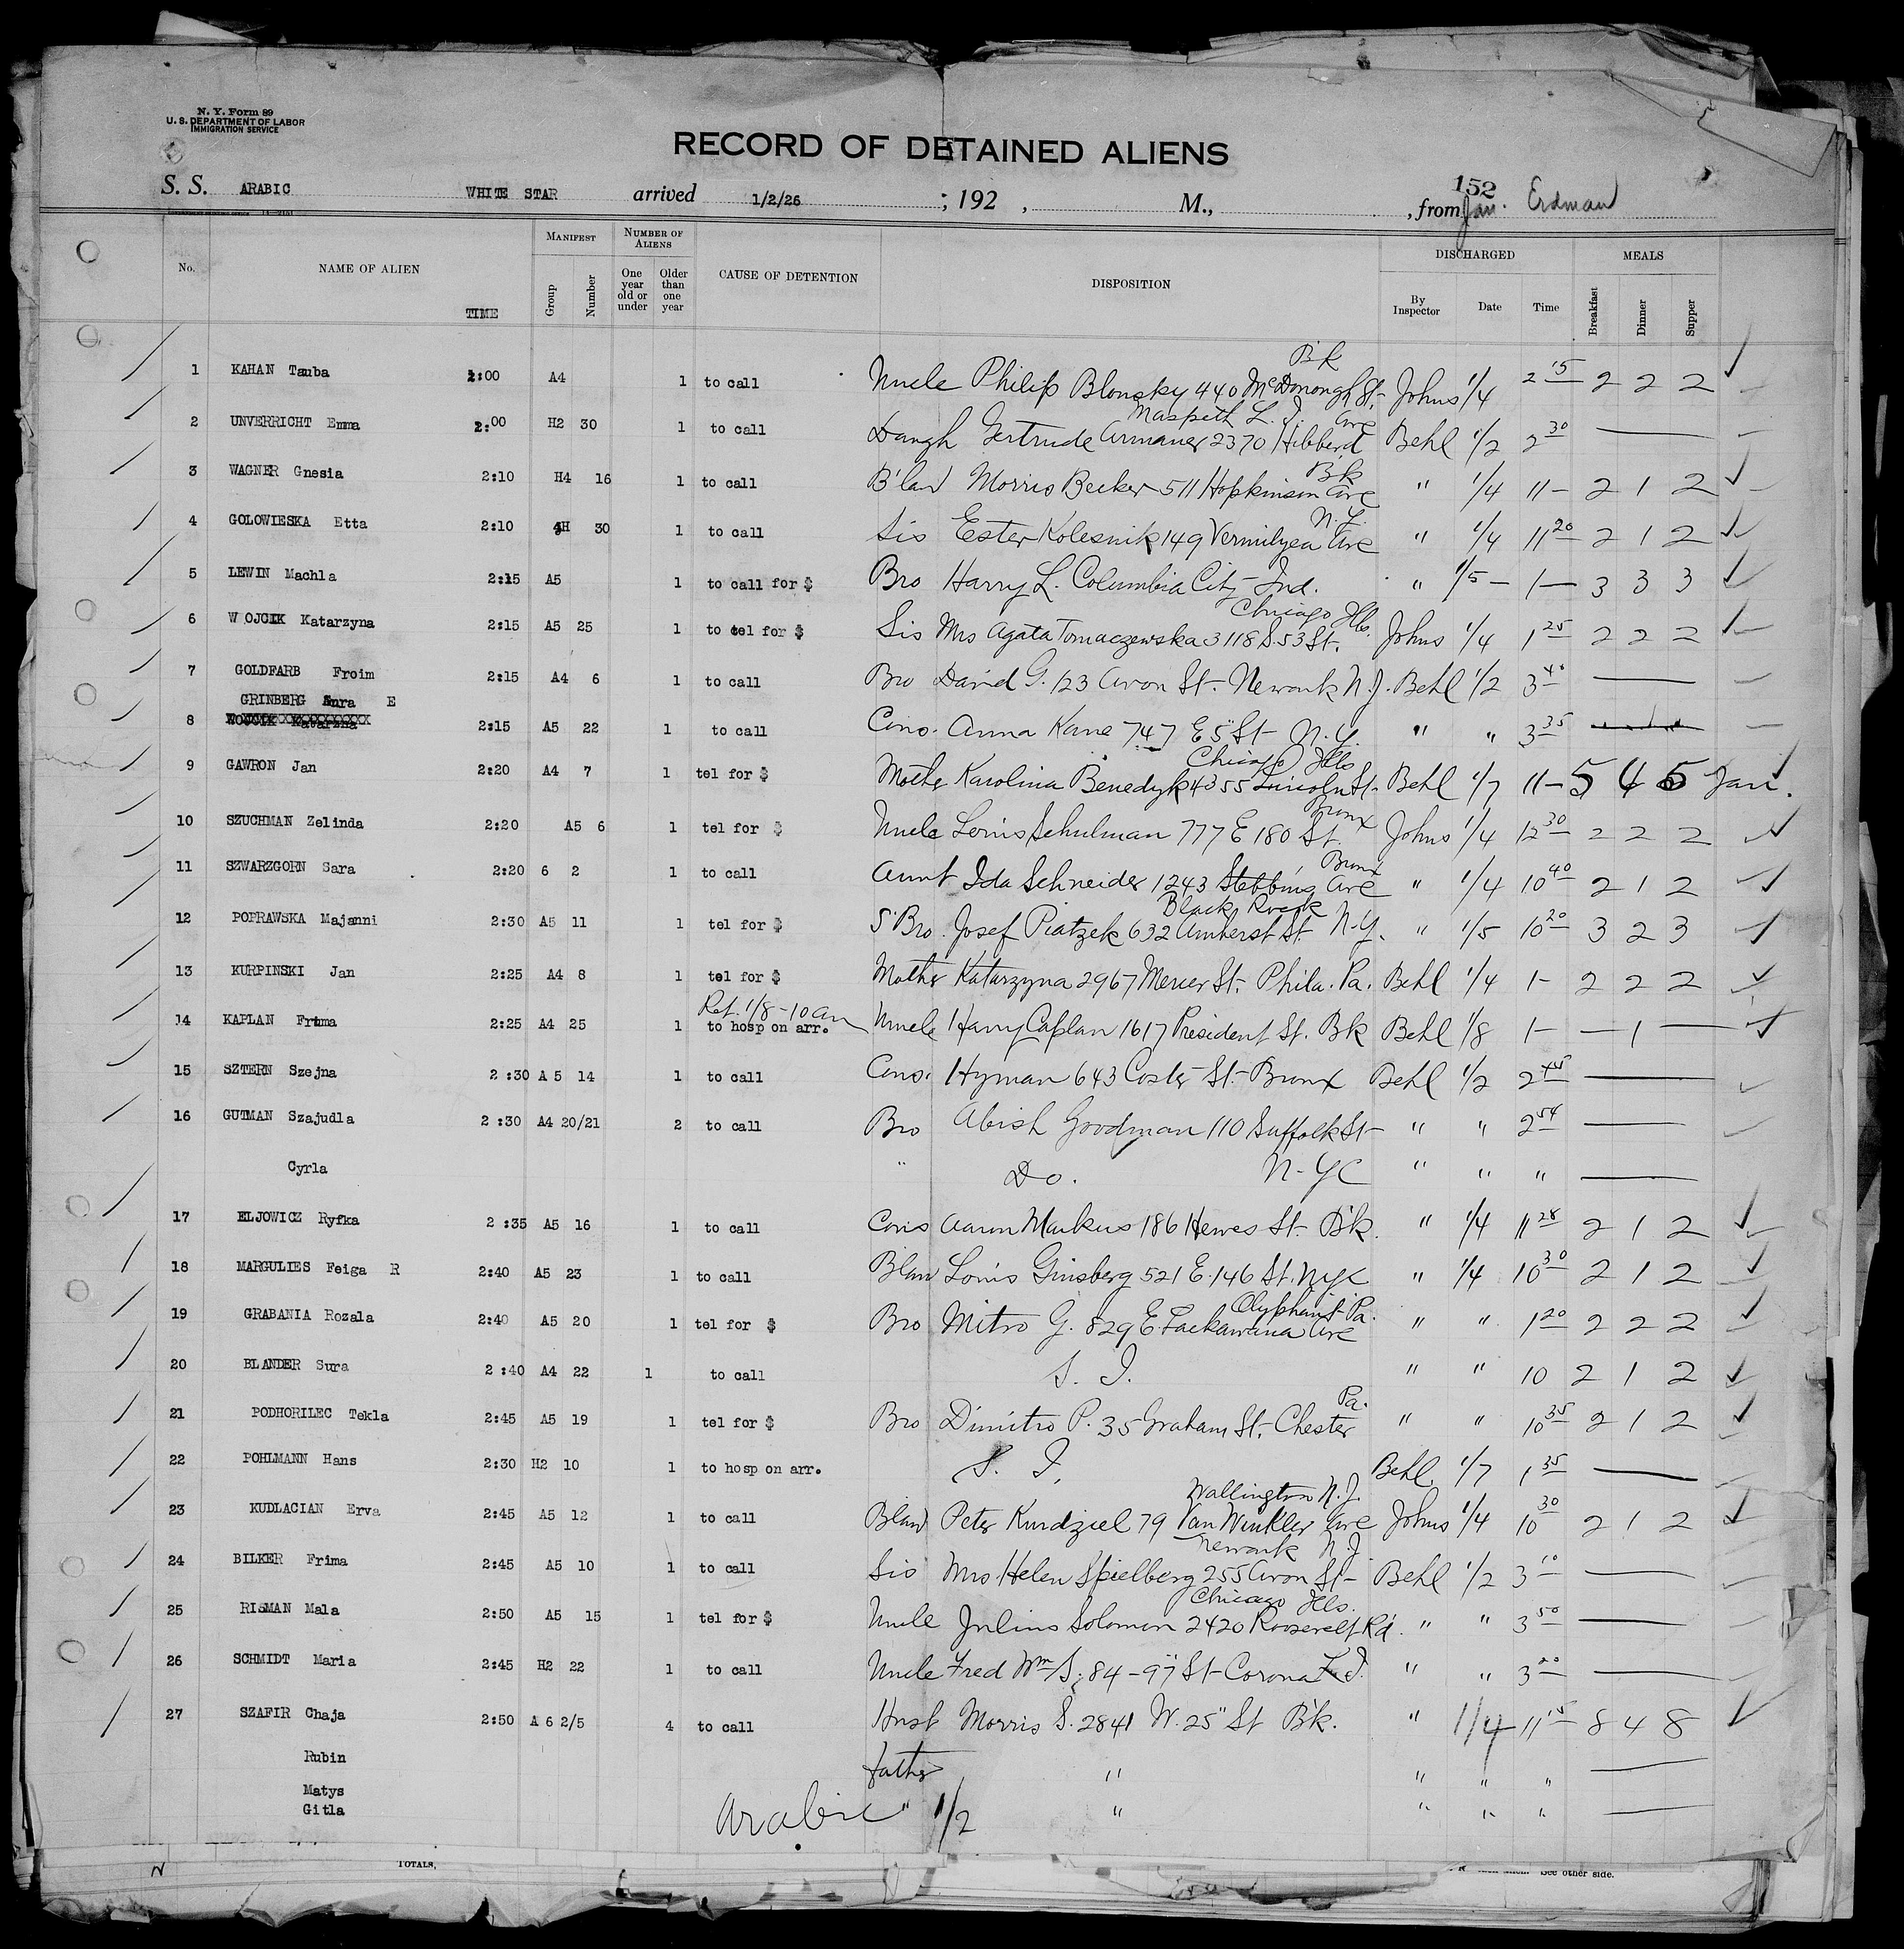 N. Y. Form 89
U. S. DEPARTMENT OF LABOR
IMMIGRATION SERVICE
RECORD OF DETAINED ALIENS
152
S. S. ARABIC WHITE STAR arrived 1/2/26 ; 192 , M., , from Jan. Erdman
No. NAME OF ALIEN TIME MANIFEST Group Number NUMBER OF ALIENS One year old or under Older than one year CAUSE OF DETENTION DISPOSITION DISCHARGED By Inspector Date Time MEALS Breakfast Dinner Supper
Bk
1 KAHAN Tauba 2:00 A4 1 to call Uncle Philip Blonsky 440 McDonough St. Johns 1/4 2 15 2 2 2
Maspeth L. I. Ave
2 UNVERRICHT Emma 2:00 H2 30 1 to call Daugh Gertrude Armaner 2370 Hibberd Behl 1/2 2 30 —
Bk
3 WAGNER Gnesia 2:10 H4 16 1 to call B'law Morris Becker 511 Hopkinson Ave " 1/4 11 - 2 1 2
N.Y.
4 GOLOWIESKA Etta 2:10 4H 30 1 to call Sis Ester Kolesnik 149 Vermilyea Ave " 1/4 11 20 2 1 2
5 LEWIN Machla 2:15 A5 1 to call for $ Bro Harry L. Columbia City Ind. " 1/5 - 1 — 3 3 3
Chicago Ills.
6 WOJCIK Katarzyna 2:15 A5 25 1 to tel for $ Sis Mrs Agata Tomaczewska 3118 S. 53 St. Johns 1/4 1 25 2 2 2
7 GOLDFARB Froim 2:15 A4 6 1 to call Bro David G. 123 Avon St. Newark N.J. Behl 1/2 3 40 —
GRINBERG E
8 WOJCIK Katarzna 2:15 A5 22 1 to call Cous. Anna Kane 747 E 5" St N.Y. " " 3 35 —
Chicago Ills
9 GAWRON Jan 2:20 A4 7 1 tel for $ Mother Karolina Benedyk 4355 Lincoln St. Behl 1/7 11 — 5 4 5 Jan.
Bronx
10 SZUCHMAN Zelinda 2:20 A5 6 1 tel for $ Uncle Louis Schulman 777 E 180 St. Johns 1/4 12 30 2 2 2
Bronx
11 SZWARZGORN Sara 2:20 6 2 1 to call Aunt Ida Schneider 1243 Stebbins Ave " 1/4 10 40 2 1 2
Black Rock
12 POPRAWSKA Majanni 2:30 A5 11 1 tel for $ S'Bro. Josef Piatzek 632 Amherst St. N.Y. " 1/5 10 20 3 2 3
13 KURPINSKI Jan 2:25 A4 8 1 tel for $ Mother Katarzyna 2967 Mercer St. Phila. Pa. Behl 1/4 1 - 2 2 2
Ret. 1/8 - 10 am
14 KAPLAN Frima 2:25 A4 25 1 to hosp on arr. Uncle Harry Caplan 1617 President St. Bk Behl 1/8 1 - — 1 —
15 SZTERN Szejna 2:30 A 5 14 1 to call Cous. Hyman 643 Coster St. Bronx Behl 1/2 2 45 —
16 GUTMAN Szajudla 2:30 A4 20/21 2 to call Bro Abish Goodman 110 Suffolk St " " 2 54 —
Cyrla " Do. N-YC " " " —
17 ELJOWICZ Ryfka 2:35 A5 16 1 to call Cous Aaron Markus 186 Hewes St. Bk. " 1/4 11 28 2 1 2
18 MARGULIES Feiga R 2:40 A5 23 1 to call Blaw Louis Ginsberg 521 E. 146 St. NYC " 1/4 10 30 2 1 2
Olyphant Pa.
19 GRABANIA Rozala 2:40 A5 20 1 tel for $ Bro Mitro G. 829 E. Lackawana Ave " " 1 20 2 2 2
20 BLANDER Sura 2:40 A4 22 1 to call S. I. " " 10 2 1 2
Pa.
21 PODHORILEC Tekla 2:45 A5 19 1 tel for $ Bro Dimitro P. 35 Graham St. Chester " " 10 35 2 1 2
22 POHLMANN Hans 2:30 H2 10 1 to hosp on arr. S. I. Behl 1/7 1 35 —
Wallington N.J.
23 KUDLACIAN Erva 2:45 A5 12 1 to call Blaw Peter Kurdziel 79 Van Winkler Ave Johns 1/4 10 30 2 1 2
Newark N.J.
24 BILKER Frima 2:45 A5 10 1 to call Sis Mrs Helen Spielberg 255 Avon St - Behl 1/2 3 10 —
Chicago Ills.
25 RISMAN Mala 2:50 A5 15 1 tel for $ Uncle Julius Solomon 2420 Roosevelt Rd. " " 3 50 —
26 SCHMIDT Maria 2:45 H2 22 1 to call Uncle Fred Wm S. 84 - 97 St Corona L.I. " " 3 20 —
27 SZAFIR Chaja 2:50 A 6 2/5 4 to call Husb Morris S. 2841 W. 25" St Bk. " 1/4 11 15 8 4 8
Rubin father " " " " —
Matys
Gitla " " " " " —
Arabic 1/2
TOTALS,
See other side.